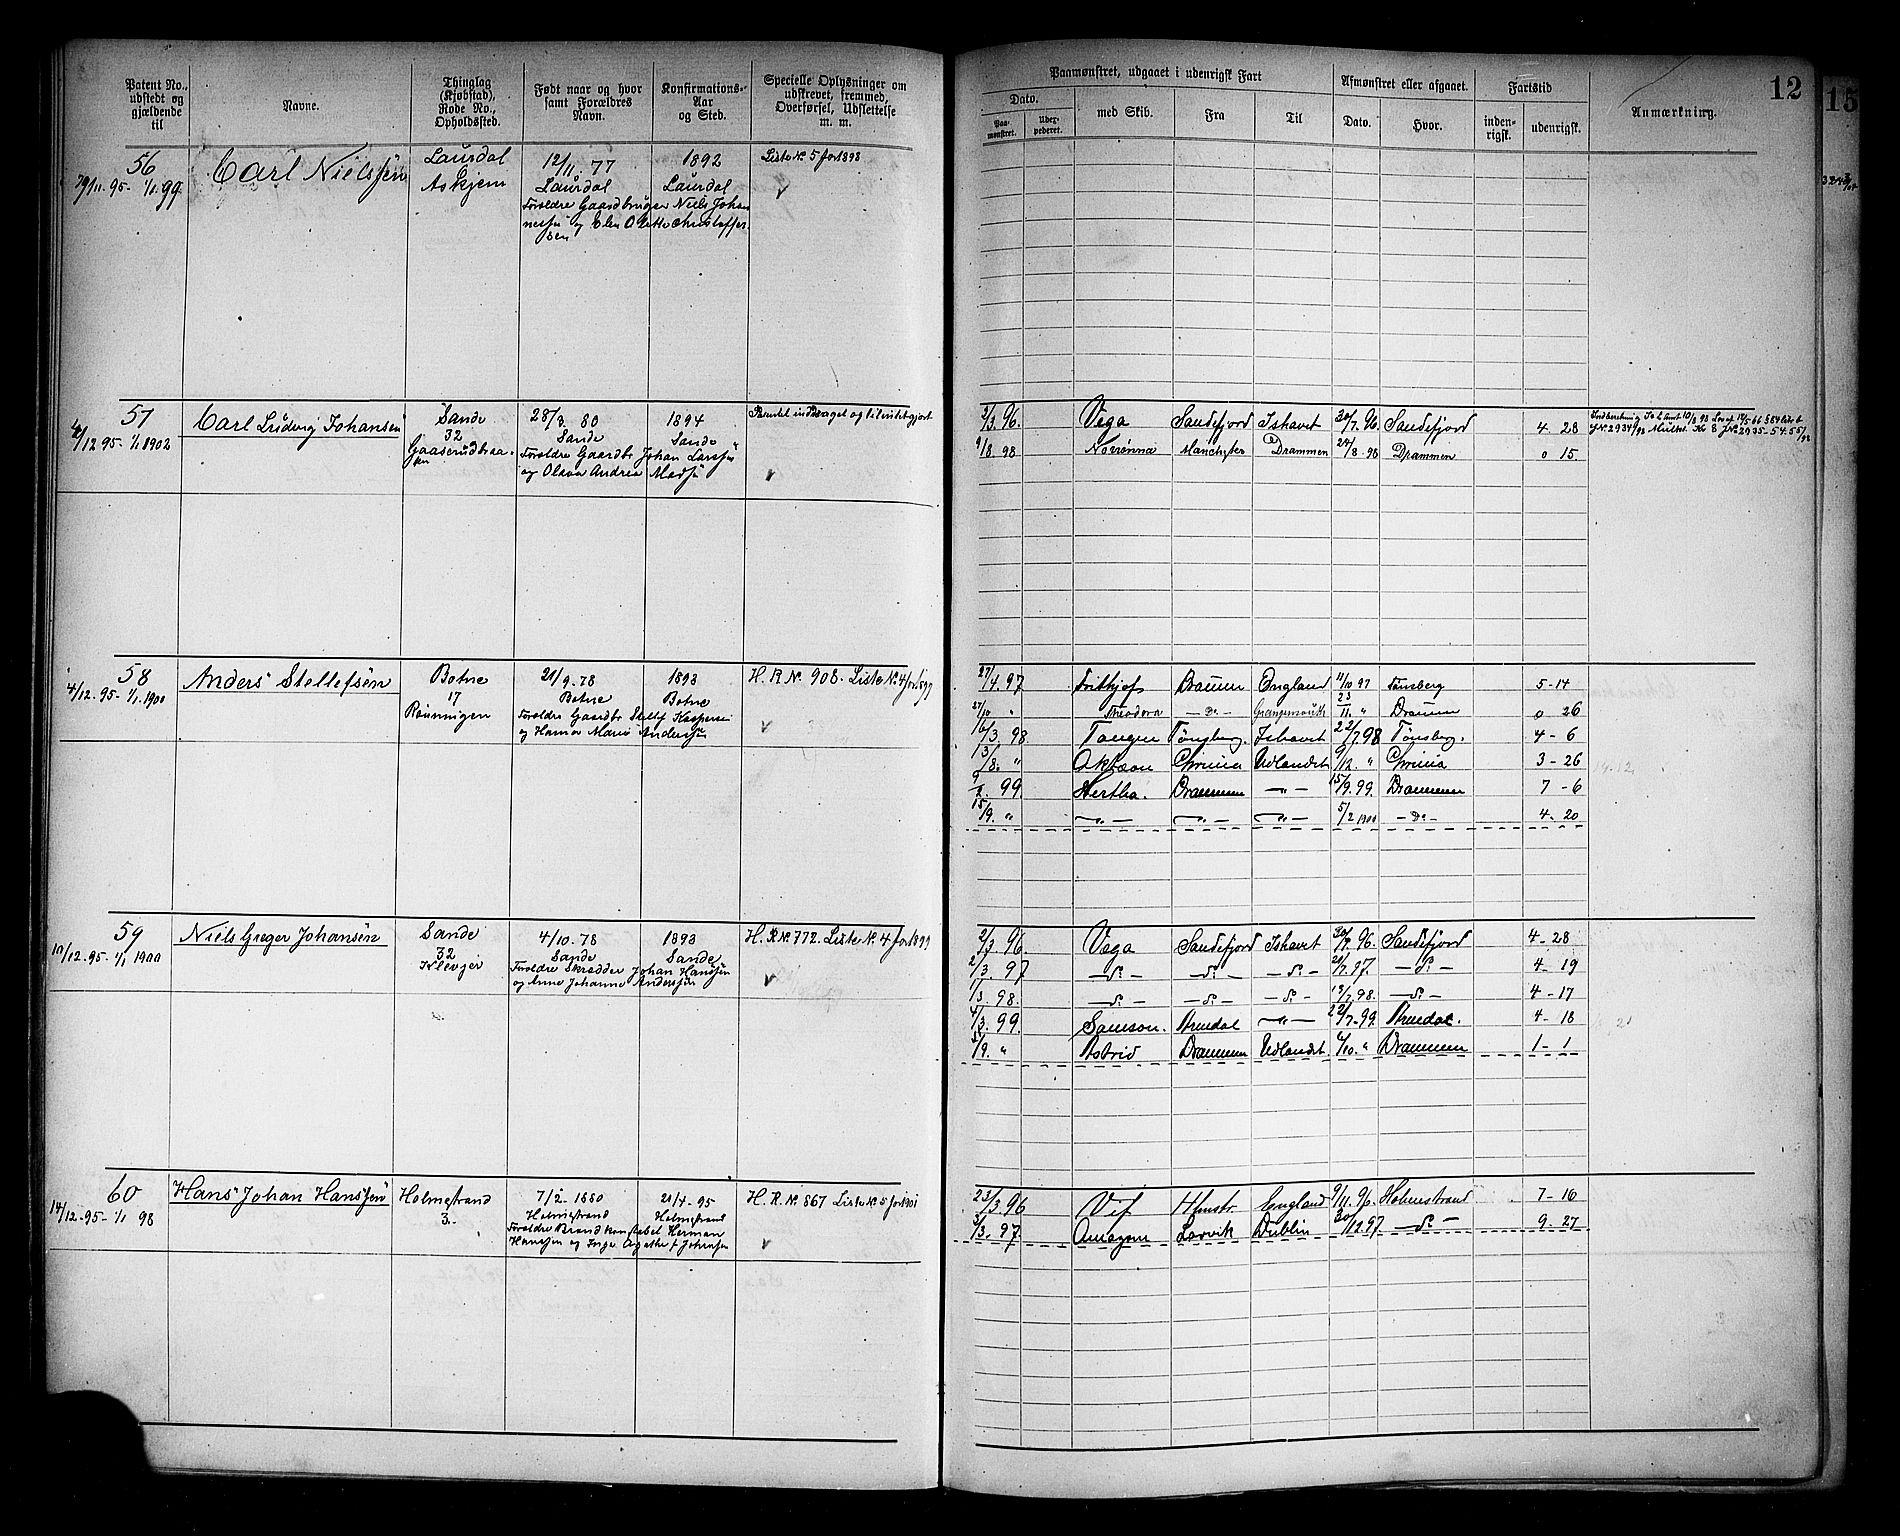 Patent No., udstedt og gjældende til
Navne.
Thinglag (Kjøbstad), Rode No., Opholdssted.
Født naar og hvor samt Forældres Navn.
Konfirmations-Aar og Sted.
Specielle Oplysninger om udskrevet, fremmed, Overførsel, Udslettelse m. m.
Paamønstret, udgaaet i udenrigsk Fart
Dato.
Paa-mønstret.
med Skib.
Fra
Til
Afmønstret eller afgaaet.
Dato.
Hvor.
Fartstid
inden-rigsk.
udenrigsk.
Anmærkning.
12
15
56
11. 95 - 1/1. 99
Carl Nielssen
Laurdal
Askjem
12/11. 77
Laurdal
Forældre Gaardbruger Niels Johan
1892
Laurdal
Liste N. 5 for 1898
57
4/12. 95 - 1/1 1902
Carl Ludvig Johansen
Sande
32
28/3. 80
Sande
Forældre Gaardbr Johan Larssen
og Olava Andrea Madsen
1894
Sande
2/3. 96. Vega Sandefjord Ishavet 30/7. 96. Sandefjord 4. 28
9/8. 98 Norrønna Manchester Drammen 24/8. 98 Drammen 0 15.
58
4/12. 95 - 1/1. 1900
Anders Stellefsen
Botne
17
Rønningen
21/9. 78
Botne
Forældre Gaardbr Stellef Kaspersen
og Hanna Marie Anderssen
1893
Botne
H. R N. 908. Liste N. 4 for 1899
27/4. 97 Frithjof Drammen England 11/10 97 Tønsberg 5-14
27/10 " Theodora — Do — Grangemouth 23/11. " Drammen 0 26
16/3. 98. Tønsberg. Ishavet 22/7. 98 Tønsberg. 4 - 6
13/8. " Aktæon Chrinia Udlandet 9/12. " Chrinia 3 - 26
99 Hertha. Drammen — " — 15/9. 99. Drammen 7 - 6
15/9. " — " — — " — — " — 5/2 1900 — Do — 4. 20
59
10/12. 95 - 1/1 1900
Niels Greger Johansen
Sande
32
Klevjer
4/10. 78
Sande
Forældre Skrædder Johan Hanssen
og Anne Johanne Anderssen
1893
Sande
H. R N. 772. Liste N. 4 for 1899
2/3. 96. Vega Sandefjord Ishavet 30/7. 96. Sandefjord 4 - 28
2/3. 97 — do — — do — — do — 21/7. 97. — do — 4 - 19
1/3. 98. — do — — do — — do — 13/7. 98. — do — 4 - 17
4/3. 99. Samson. Arendal — " — 22/7. 99. Arendal. 4 - 18
/9. " Astrid Drammen Udlandet 4/10. " Drammen 1 - 1
60
14/12. 95 - 1/1 98
Hans Johan Hanssen
Holmestrand
3.
7/2 - 1880
Holmestrand
Forældre Brandkonstabel Herman
Hanssen og Inger Agathe f Johansen
21/4 - 95
Holmestrand
H. R. N. 867 Liste N. 5 for 1901
23/3. 96 Vif Hlmstr. England 9/11. 96. Holmestrand 7 - 16
3/3. 97. Larvik Dublin 30/12 97 — do — 9. 27